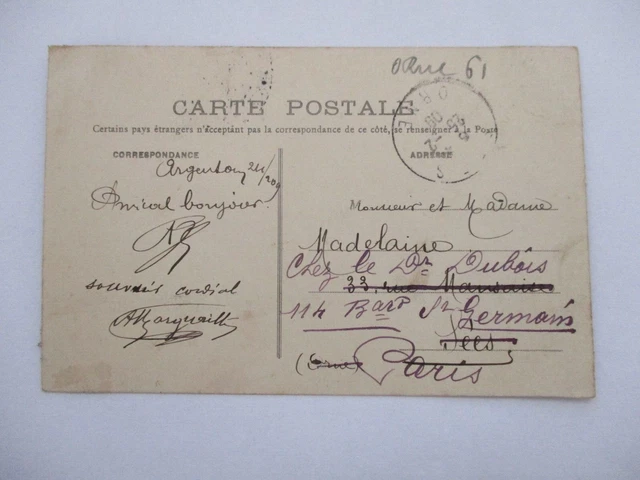 Orne 61
CARTE POSTALE
Certains pays étrangers n'acceptant pas la correspondance de ce côté, se renseigner à la Poste
CORRESPONDANCE
Argentan 24/209
Amical bonjour.
souvenir cordial
ADRESSE
ORNE
Monsieur et Madame
Madelaine
Chez le Dr Dubois
33, rue
114 Bard St Germain
Sées
(Orne)
Paris